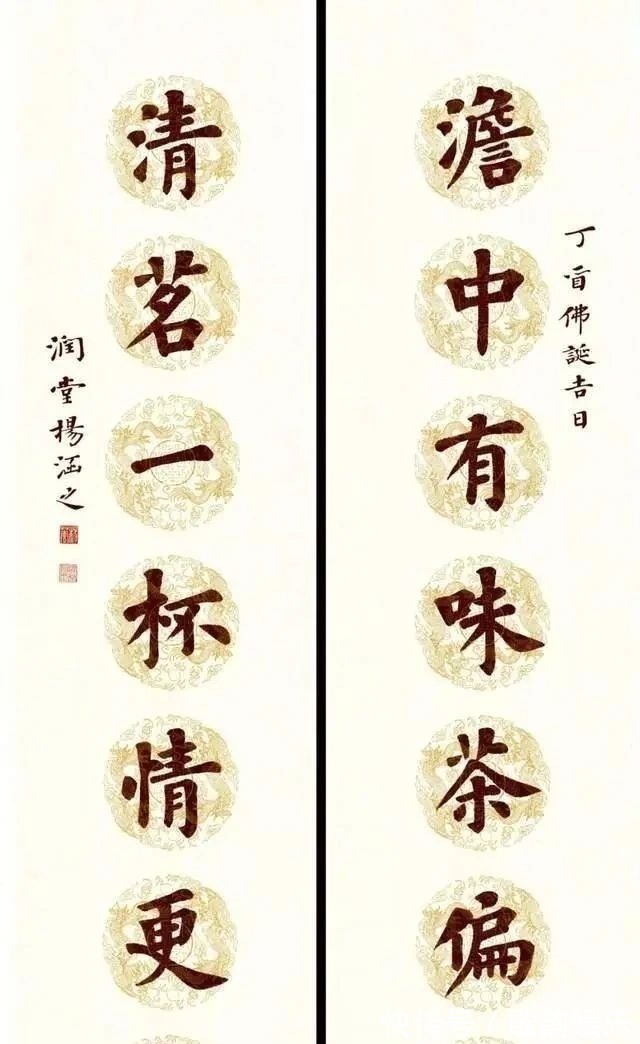 丁酉佛誕吉日
澹中有味茶偏
清茗一杯情更
潤堂楊涵之